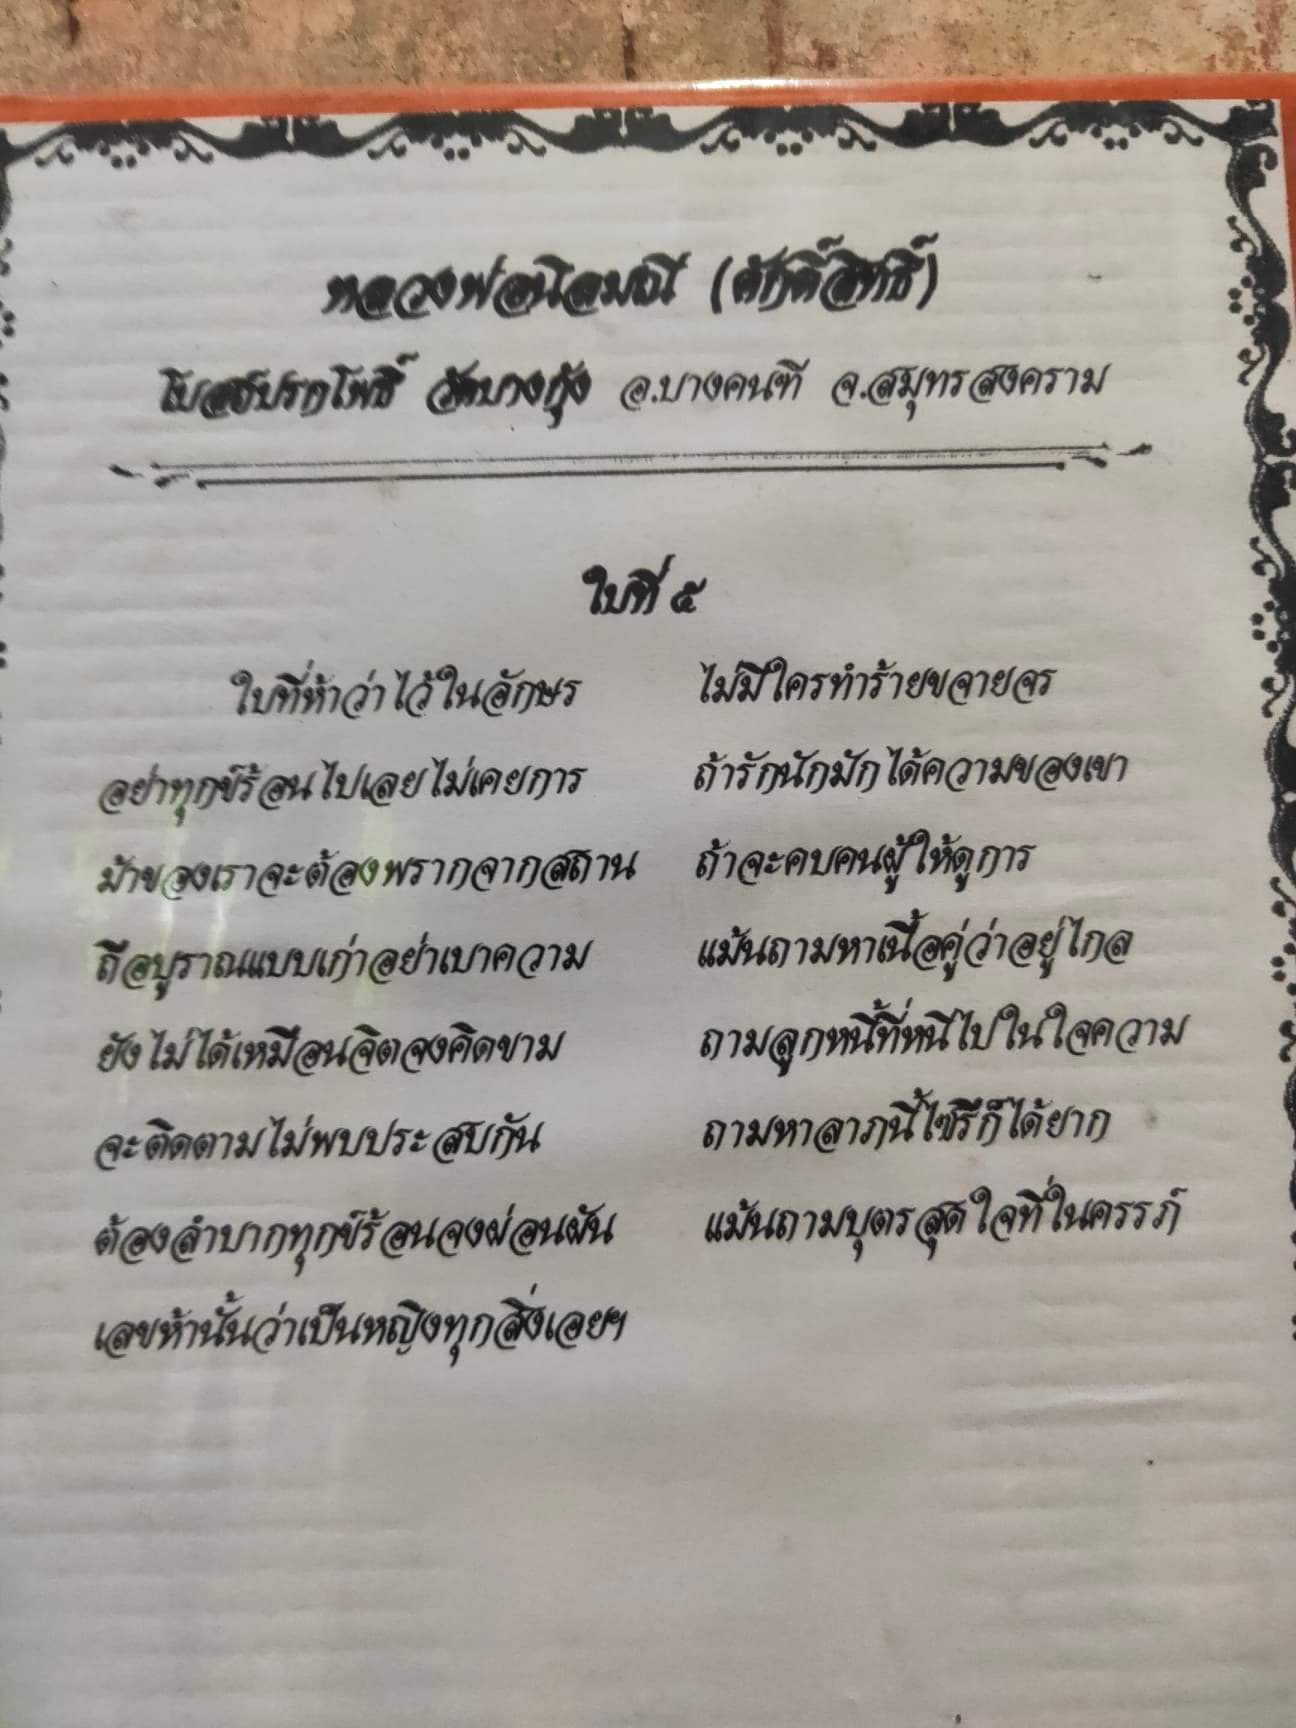 หลวงพ่อนิลมณี (ศักดิ์สิทธิ์)
โบสถ์ปรกโพธิ์ วัดบางกุ้ง อ.บางคนที จ.สมุทรสงคราม
ใบที่ ๕
ใบที่ห้าว่าไว้ในอักษร ไม่มีใครทำร้ายขจายจร
อย่าทุกข์ร้อนไปเลยไม่เคยการ ถ้ารักนักมักได้ความของเขา
ม้าของเราจะต้องพรากจากสถาน ถ้าจะคบคนผู้ให้ดูการ
ถือบูราณแบบเก่าอย่าเบาความ แม้นถามหาเนื้อคู่ว่าอยู่ไกล
ยังไม่ได้เหมือนจิตจงคิดขาม ถามลูกหนี้ที่หนีไปในใจความ
จะติดตามไม่พบประสบกัน ถามหาลาภนี้ไซร้ก็ได้ยาก
ต้องลำบากทุกข์ร้อนจงผ่อนผัน แม้นถามบุตรสุดใจที่ในครรภ์
เลขห้านั้นว่าเป็นหญิงทุกสิ่งเอยฯ